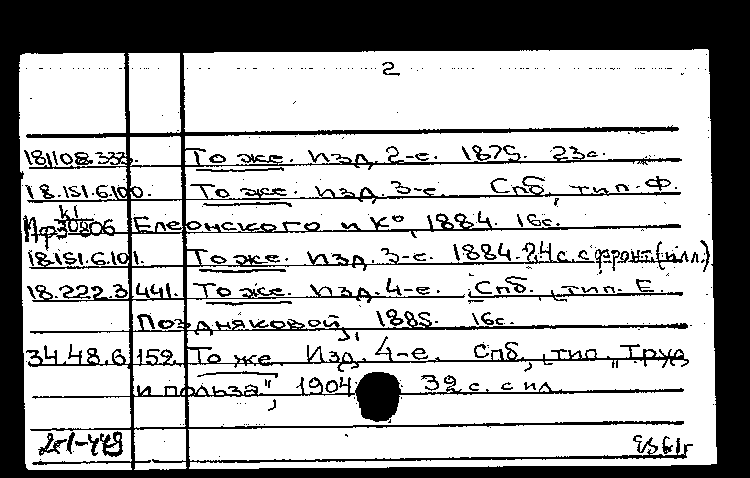 2
18.108.333. То же. Изд. 2-е. 1875. 23с.
18.151.6.100. То же. Изд. 3-е. Спб., тип. Ф.
Елеонского и К°, 1884. 16с.
18.151.6.101. То же. Изд. 3-е. 1884. 24с. с фронт. (илл.)
18.222.3.441. То же. Изд. 4-е. Спб., тип. Е.
Поздняковой, 1885. 16с.
34.48.6.159. То же. Изд. 4-е. Спб., тип. „Труд
и польза", 1904. 32 с. с ил.